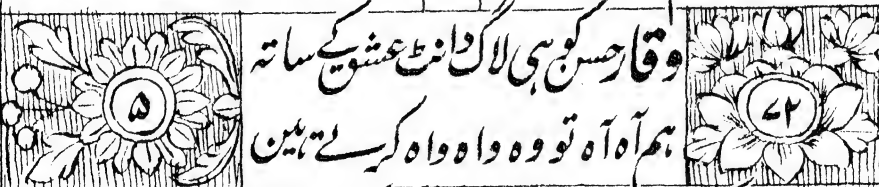 ۷۲
وقار حسن کو ہی لاگ ڈانٹ عشق کے ساتہ
ہم آہ آہ تو وہ واہ واہ کرتے ہین
۵